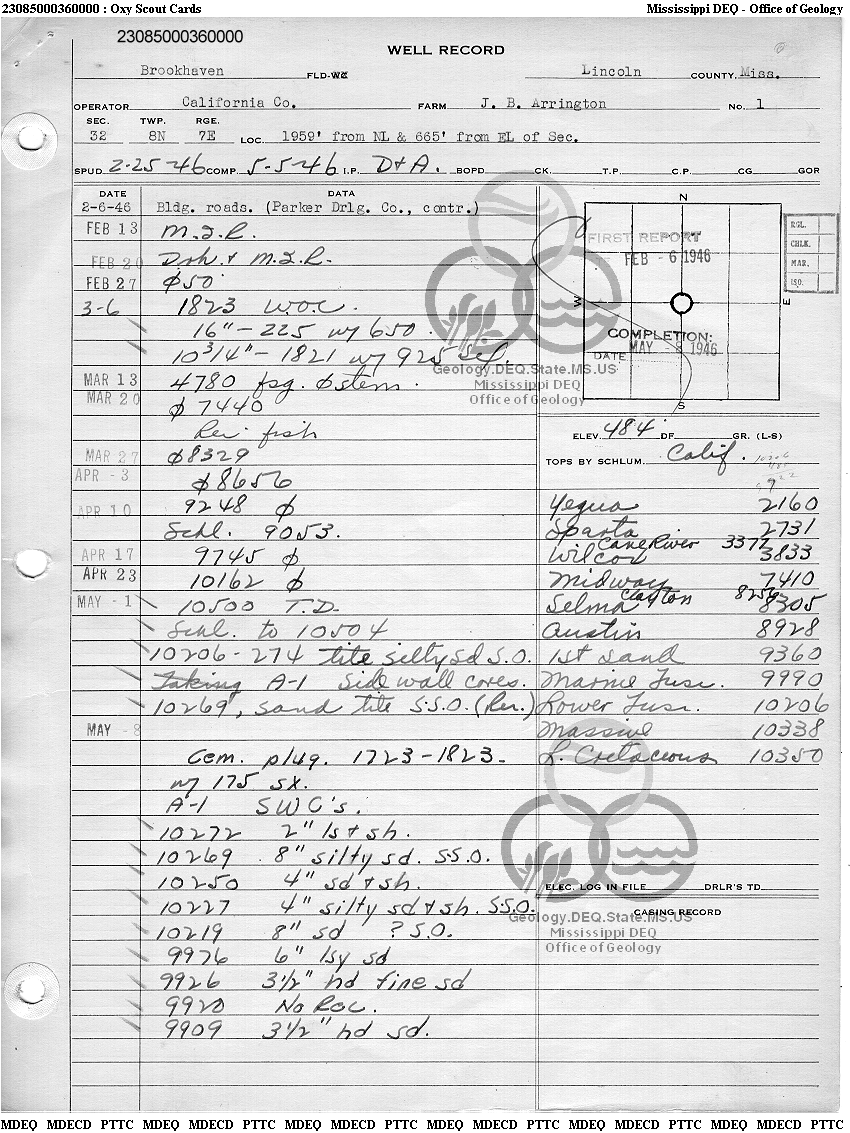 23085000360000 : Oxy Scout Cards Mississippi DEQ - Office of Geology
23085000360000
WELL RECORD
Brookhaven FLD-WC Lincoln COUNTY, Miss.
OPERATOR California Co. FARM J. B. Arrington No. 1
SEC. TWP. RGE.
32 8N 7E LOC. 1959' from NL & 665' from EL of Sec.
SPUD 2-25-46 COMP. 5-5-46 I.P. D+A. BOPD CK. T.P. C.P. CG GOR
DATE DATA
2-6-46 Bldg. roads. (Parker Drlg. Co., contr.)
FEB 13 M.I.R.
FEB 20 Drk. + M.I.R.
FEB 27 ϕ50
3-6 1823 W.O.C.
16" - 225 w/ 650.
10 3/4" - 1821 w/ 925
MAR 13 4780 fsg. ϕ stem.
MAR 20 ϕ 7440
Rev. fish
MAR 27 ϕ8329
APR - 3 ϕ8656
APR 10 9248 ϕ
Schl. 9053.
APR 17 9745 ϕ
APR 23 10162 ϕ
MAY - 1 10500 T.D.
Schl. to 10504
10206-274 tite silty sd S.O.
Taking A-1 Side wall cores.
10269, sand tite S.S.O. (Rev.)
MAY - 8
Cem. plug. 1723-1823.
w/ 175 sx.
A-1 SWC's.
10272 2" ls + sh.
10269 8" silty sd. S.S.O.
10250 4" sd + sh.
10227 4" silty sd + sh. S.S.O.
10219 8" sd ? S.O.
9976 6" lsy sd
9926 3 1/2" hd fine sd
9920 No Rec.
9909 3 1/2" hd sd.
N
W
E
S
FIRST REPORT
FEB - 6 1946
COMPLETION:
DATE MAY - 8 1946
RGL.
CHLK.
MAR.
ISO.
ELEV. 484' DF. GR. (L-S)
TOPS BY SCHLUM. Calif.
Yegua 2160
Sparta 2731
Cane River 3377
Wilcox 3833
Midway 7410
Clayton 8256
Selma 8305
Austin 8928
1st sand 9360
Marine Tusc. 9990
Lower Tusc. 10206
Massive 10338
L. Cretaceous 10350
ELEC. LOG IN FILE DRLR'S TD
CASING RECORD
Geology.DEQ.State.MS.US
Mississippi DEQ
Office of Geology
Geology.DEQ.State.MS.US
Mississippi DEQ
Office of Geology
MDEQ MDECD PTTC MDEQ MDECD PTTC MDEQ MDECD PTTC MDEQ MDECD PTTC MDEQ MDECD PTTC MDEQ MDECD PTTC